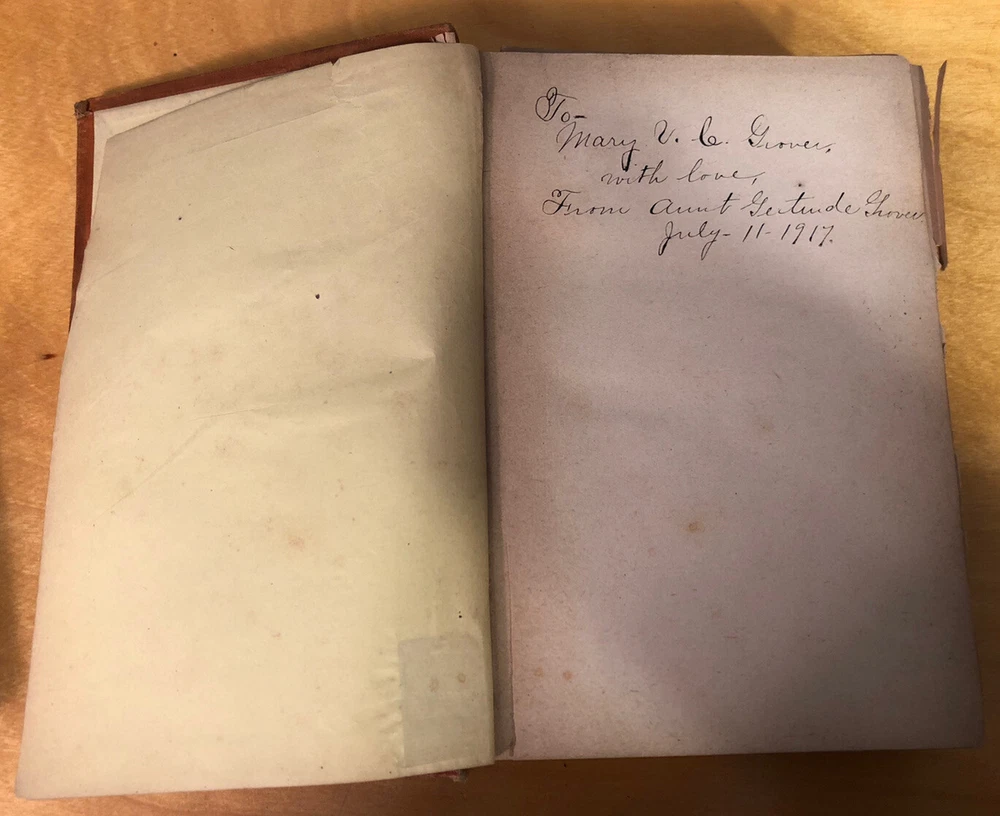 To-
Mary V. C. Grover,
with love,
From Aunt Gertrude Grover
July- 11- 1917.